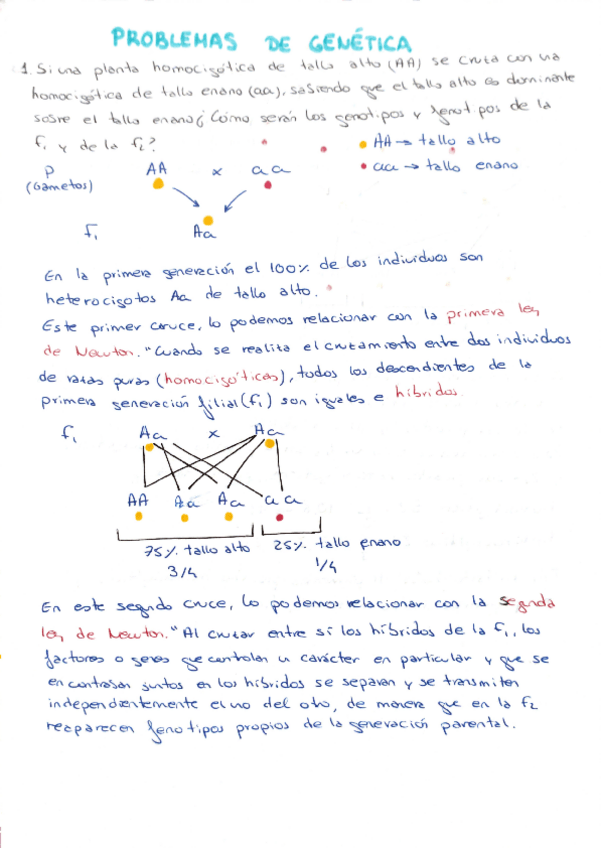 PROBLEMAS DE GENÉTICA
1. Si una planta homocigótica de tallo alto (AA) se cruza con una
homocigótica de tallo enano (aa), sabiendo que el tallo alto es dominante
sobre el tallo enano ¿Cómo serán los genotipos y fenotipos de la
f1 y de la f2?
AA → tallo alto
aa → tallo enano
P AA x aa
(Gametos)
f1 Aa
En la primera generación el 100% de los individuos son
heterocigotos Aa de tallo alto.
Este primer cruce, lo podemos relacionar con la primera ley
de Newton. "Cuando se realiza el cruzamiento entre dos individuos
de razas puras (homocigóticas), todos los descendientes de la
primera generación filial (f1) son iguales e híbridos.
f1 Aa x Aa
AA Aa Aa aa
75% tallo alto 25% tallo enano
3/4 1/4
En este segundo cruce, lo podemos relacionar con la segunda
ley de Newton. "Al cruzar entre sí los híbridos de la f1, los
factores o genes que controlan un carácter en particular y que se
encontraban juntos en los híbridos se separan y se transmiten
independientemente el uno del otro, de manera que en la f2
reaparecen fenotipos propios de la generación parental.